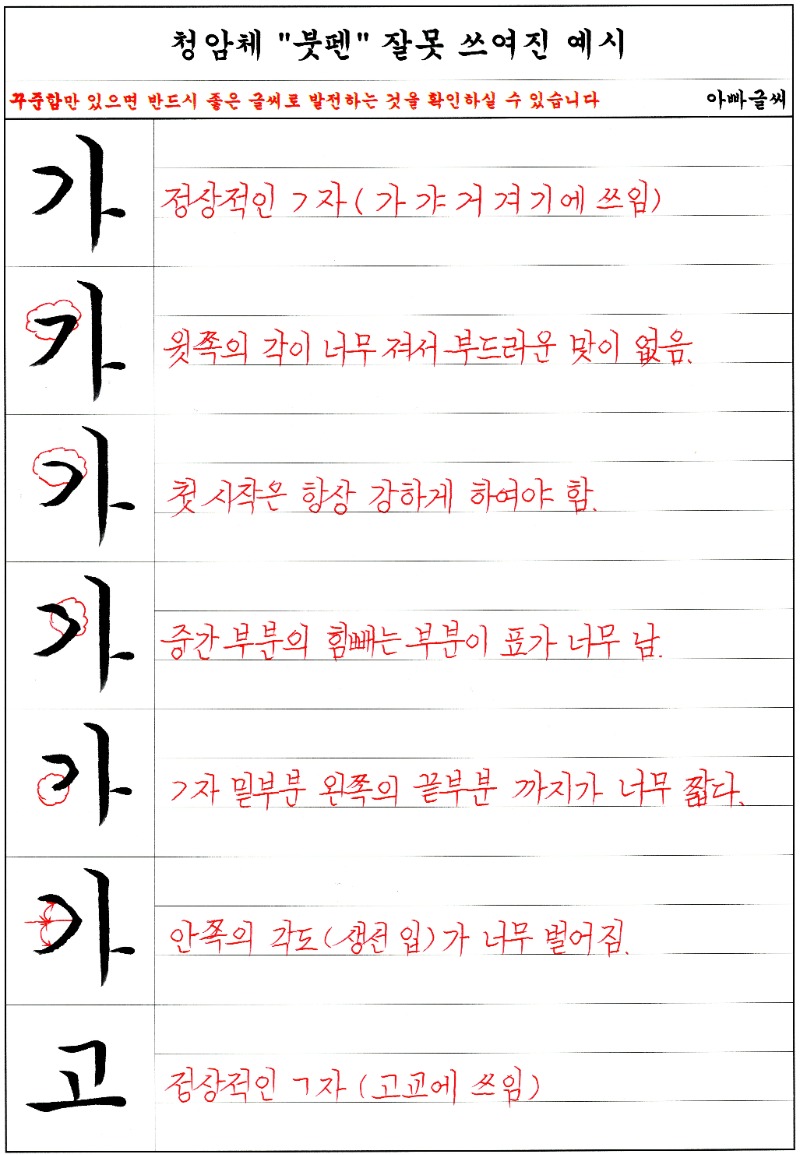 청암체 "붓펜" 잘못 쓰여진 예시
꾸준함만 있으면 반드시 좋은 글씨로 발전하는 것을 확인하실 수 있습니다
아빠글씨
가
정상적인 ㄱ자 ( 가 갸 거 겨 기에 쓰임)
가
윗쪽의 각이 너무 져서 부드러운 맛이 없음.
가
첫 시작은 항상 강하게 하여야 함.
가
중간 부분의 힘빼는 부분이 표가 너무 남.
가
ㄱ자 밑부분 왼쪽의 끝부분 까지가 너무 짧다.
가
안쪽의 각도 (생선 입) 가 너무 벌어짐.
고
정상적인 ㄱ자 (고교에 쓰임)